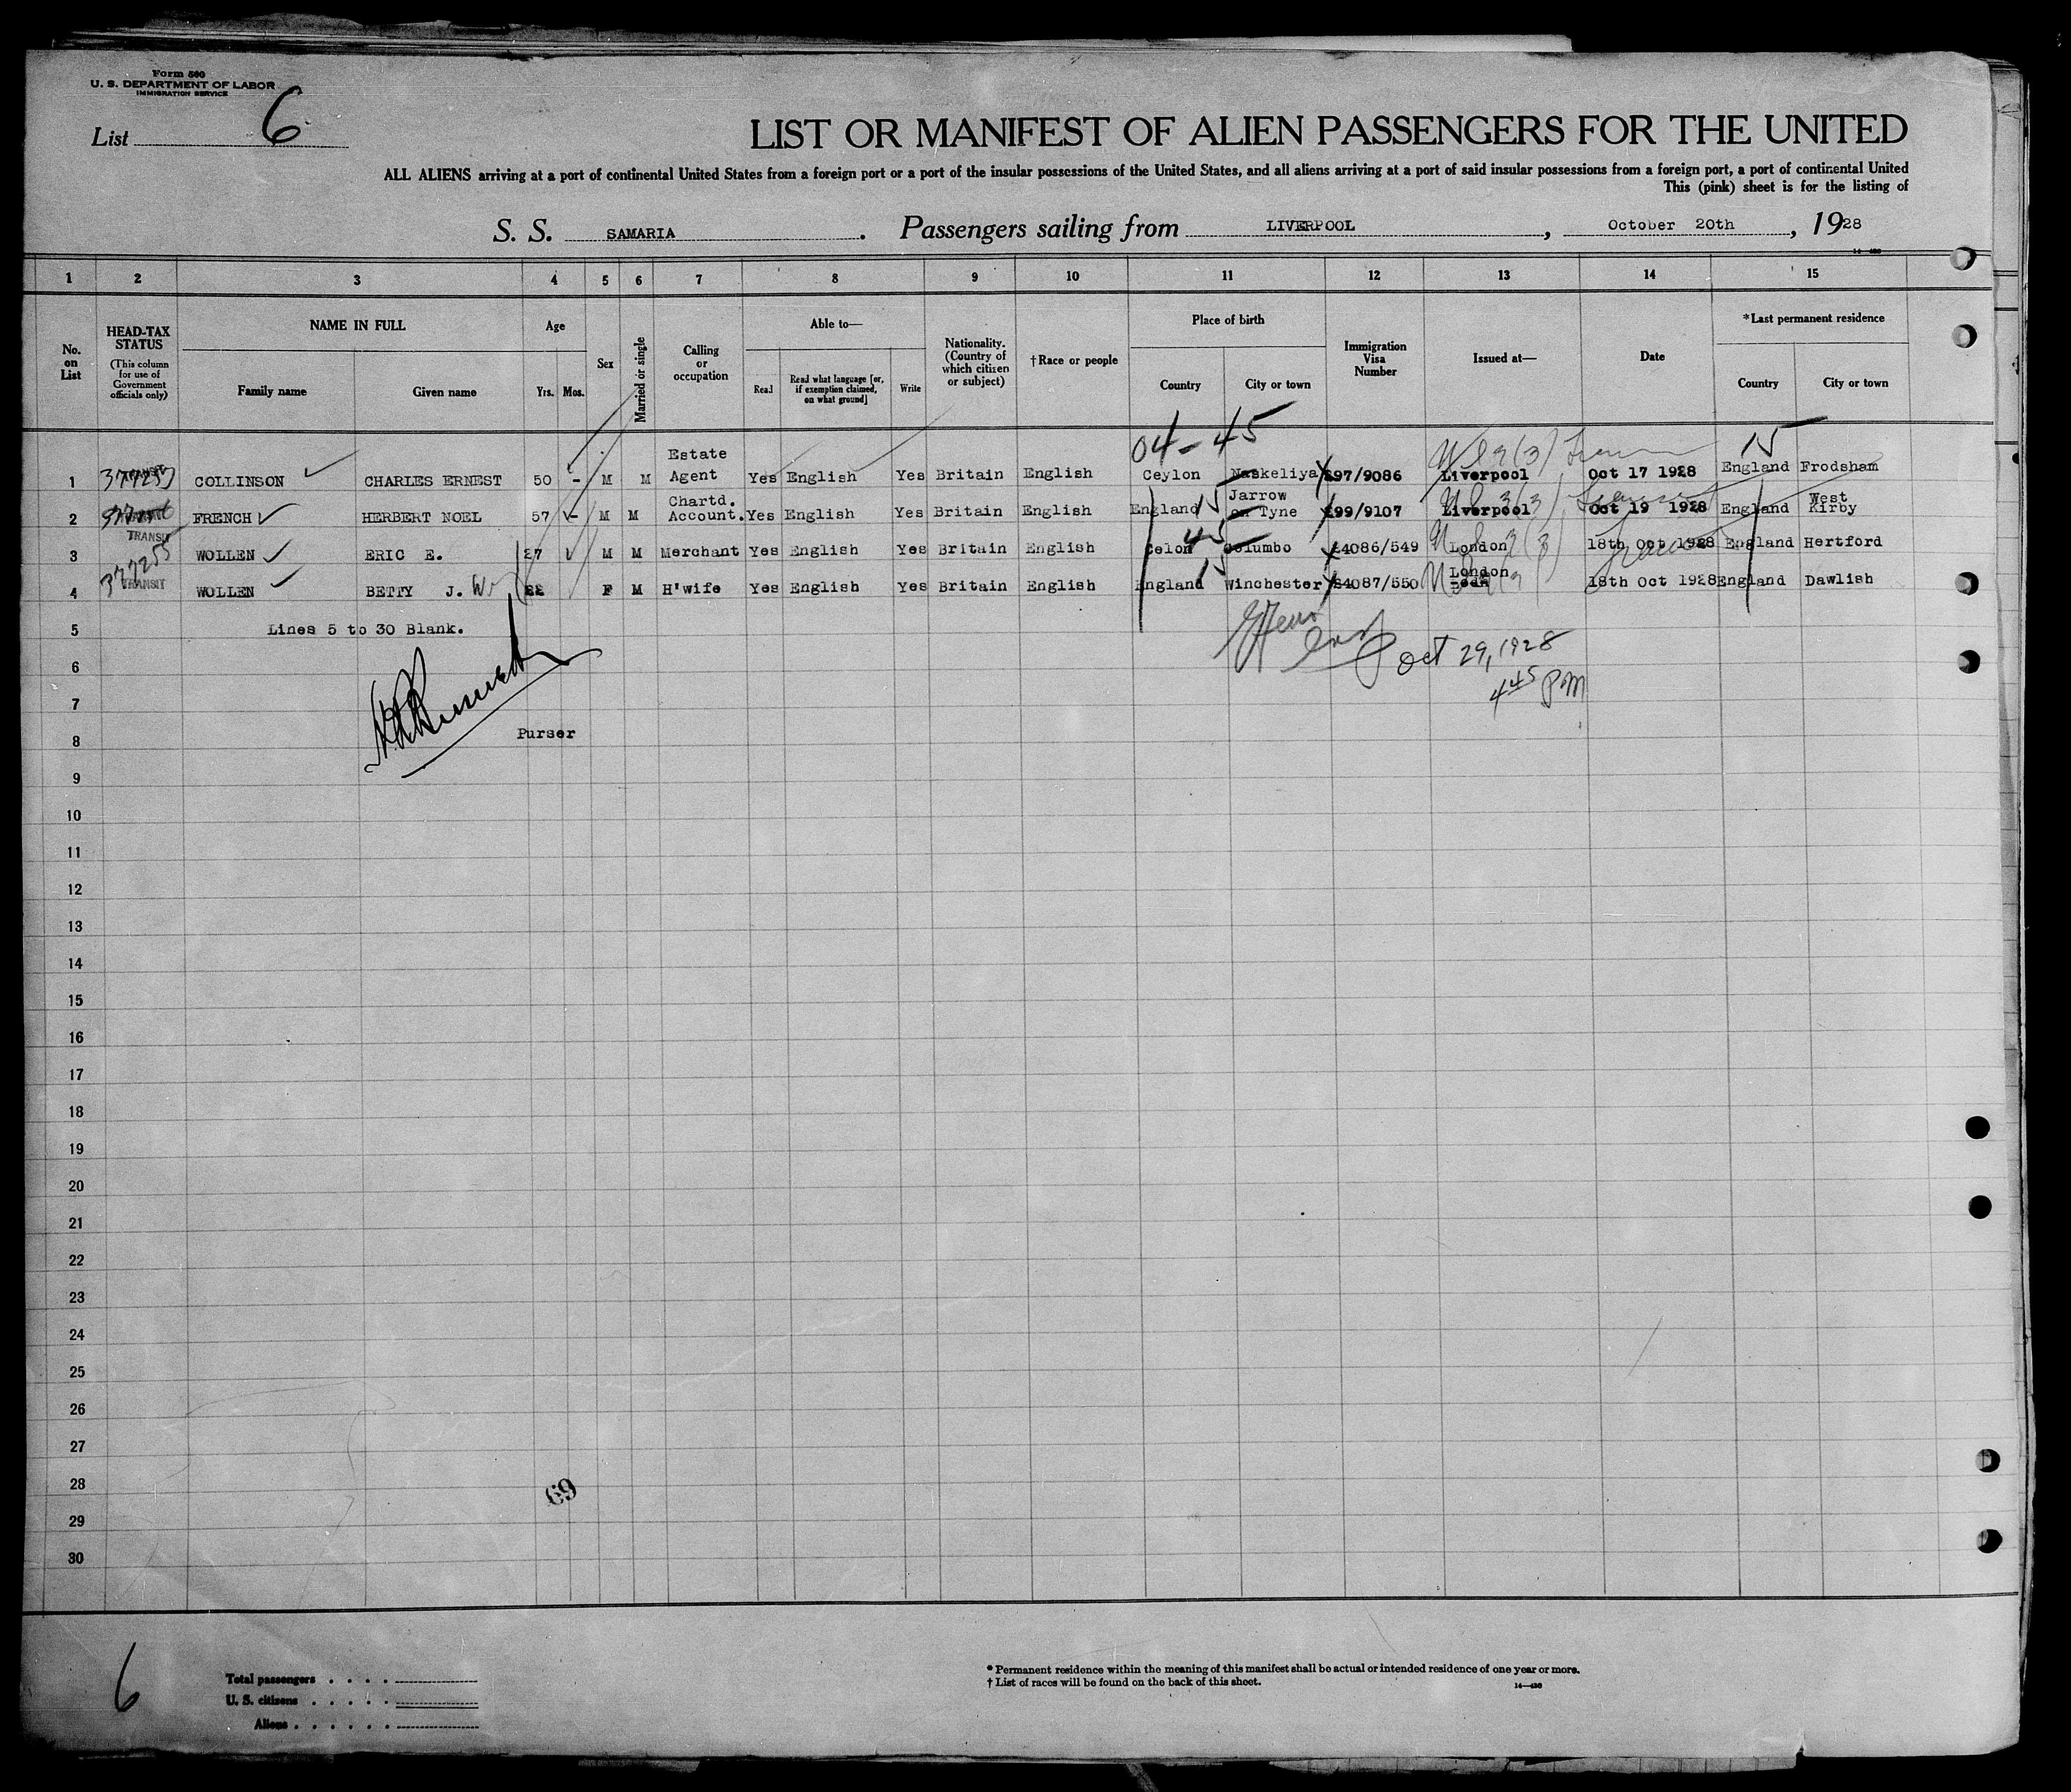 Form 500
U. S. DEPARTMENT OF LABOR
IMMIGRATION SERVICE
List 6
LIST OR MANIFEST OF ALIEN PASSENGERS FOR THE UNITED
ALL ALIENS arriving at a port of continental United States from a foreign port or a port of the insular possessions of the United States, and all aliens arriving at a port of said insular possessions from a foreign port, a port of continental United
This (pink) sheet is for the listing of
S. S. SAMARIA. Passengers sailing from LIVERPOOL, October 20th, 1928
14-430
1 2 3 4 5 6 7 8 9 10 11 12 13 14 15
No. on List
HEAD-TAX STATUS (This column for use of Government officials only)
NAME IN FULL
Family name Given name
Age
Yrs. Mos.
Sex
Married or single
Calling or occupation
Able to—
Read Read what language [or, if exemption claimed, on what ground] Write
Nationality. (Country of which citizen or subject)
†Race or people
Place of birth
Country City or town
Immigration Visa Number
Issued at—
Date
*Last permanent residence
Country City or town
04-45 15
1 TRANSIT COLLINSON CHARLES ERNEST 50 - M M Estate Agent Yes English Yes Britain English Ceylon Naskeliya 97/9086 Liverpool Oct 17 1928 England Frodsham
2 FRENCH HERBERT NOEL 57 - M M Chartd. Account. Yes English Yes Britain English England Jarrow on Tyne 99/9107 Liverpool Oct 19 1928 England West Kirby
3 377255 TRANSIT WOLLEN ERIC E. 27 M M Merchant Yes English Yes Britain English Celon Columbo 4086/549 London 18th Oct 1928 England Hertford
4 TRANSIT WOLLEN BETTY J. 22 F M H'wife Yes English Yes Britain English England Winchester 4087/550 London 18th Oct 1928 England Dawlish
5 Lines 5 to 30 Blank.
6 Oct 29, 1928
7 4 45 PM
8 Purser
9
10
11
12
13
14
15
16
17
18
19
20
21
22
23
24
25
26
27
28 69
29
30
6
Total passengers . . . .
U. S. citizens . . . . .
Aliens . . . . . .
* Permanent residence within the meaning of this manifest shall be actual or intended residence of one year or more.
† List of races will be found on the back of this sheet.
14-430